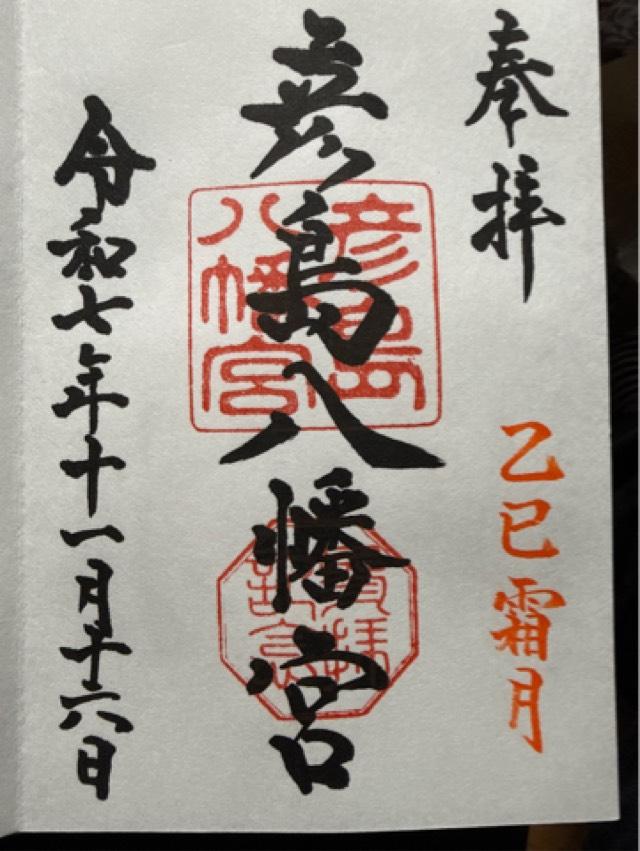 奉拝
乙巳霜月
彦島八幡宮
彦島
八幡宮
参拝
記念
令和七年十一月十六日